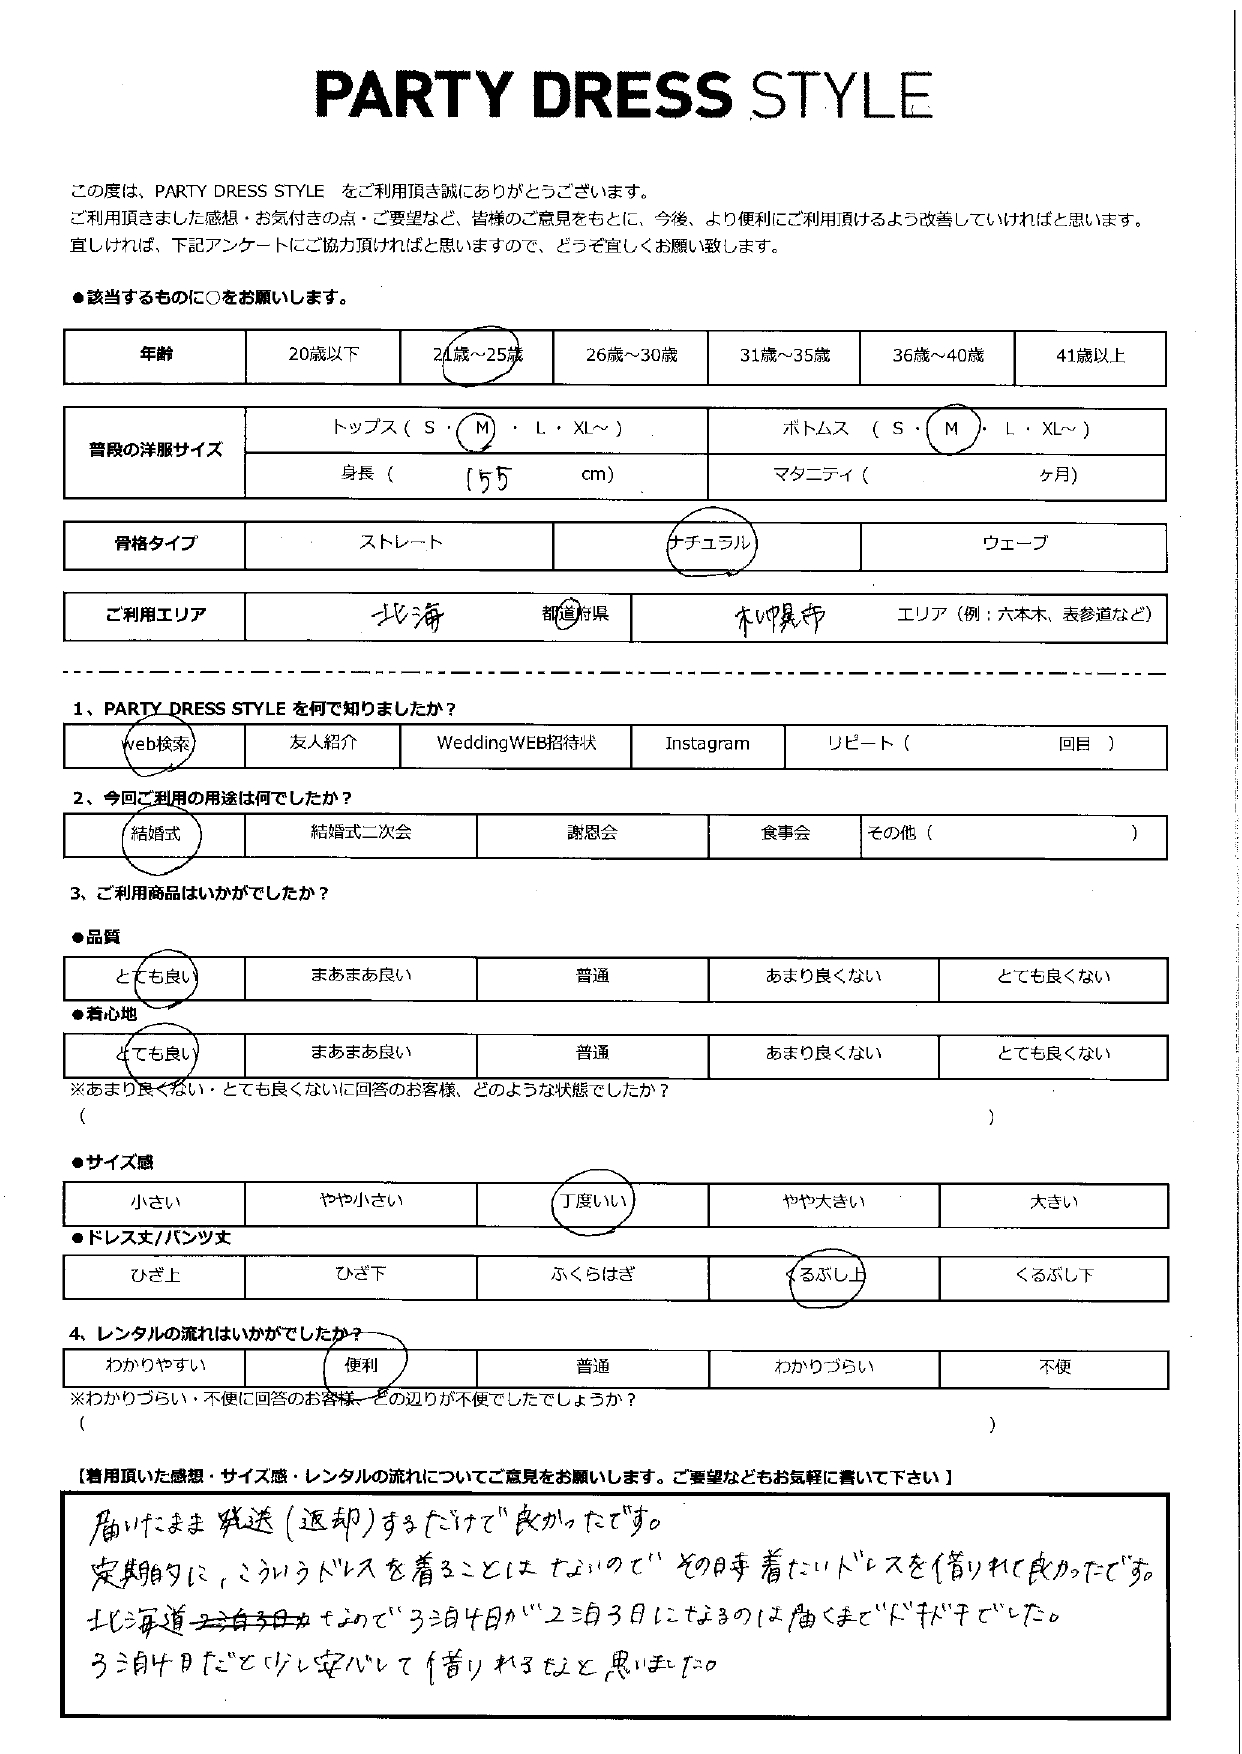 PARTY DRESS STYLE
この度は、PARTY DRESS STYLE をご利用頂き誠にありがとうございます。
ご利用頂きました感想・お気付きの点・ご要望など、皆様のご意見をもとに、今後、より便利にご利用頂けるよう改善していければと思います。
宜しければ、下記アンケートにご協力頂ければと思いますので、どうぞ宜しくお願い致します。
●該当するものに○をお願いします。
年齢 20歳以下 21歳～25歳 26歳～30歳 31歳～35歳 36歳～40歳 41歳以上
普段の洋服サイズ トップス ( S ・ M ・ L ・ XL～ ) ボトムス ( S ・ M ・ L ・ XL～ )
身長 ( 155 cm) マタニティ ( ヶ月)
骨格タイプ ストレート ナチュラル ウェーブ
ご利用エリア 北海 都道府県 札幌市 エリア（例：六本木、表参道など）
1、PARTY DRESS STYLE を何で知りましたか？
web検索 友人紹介 WeddingWEB招待状 Instagram リピート ( 回目 )
2、今回ご利用の用途は何でしたか？
結婚式 結婚式二次会 謝恩会 食事会 その他 ( )
3、ご利用商品はいかがでしたか？
●品質
とても良い まあまあ良い 普通 あまり良くない とても良くない
●着心地
とても良い まあまあ良い 普通 あまり良くない とても良くない
※あまり良くない・とても良くないに回答のお客様、どのような状態でしたか？
( )
●サイズ感
小さい やや小さい 丁度いい やや大きい 大きい
●ドレス丈/パンツ丈
ひざ上 ひざ下 ふくらはぎ くるぶし上 くるぶし下
4、レンタルの流れはいかがでしたか？
わかりやすい 便利 普通 わかりづらい 不便
※わかりづらい・不便に回答のお客様、どの辺りが不便でしたでしょうか？
( )
【着用頂いた感想・サイズ感・レンタルの流れについてご意見をお願いします。ご要望などもお気軽に書いて下さい 】
届いたまま発送(返却)するだけで良かったです。
定期的に、こういうドレスを着ることはないのでその時着たいドレスを借りれて良かったです。
北海道2泊3日かなので3泊4日が2泊3日になるのは届くまでドキドキでした。
3泊4日だと少し安心して借りれるなと思いました。